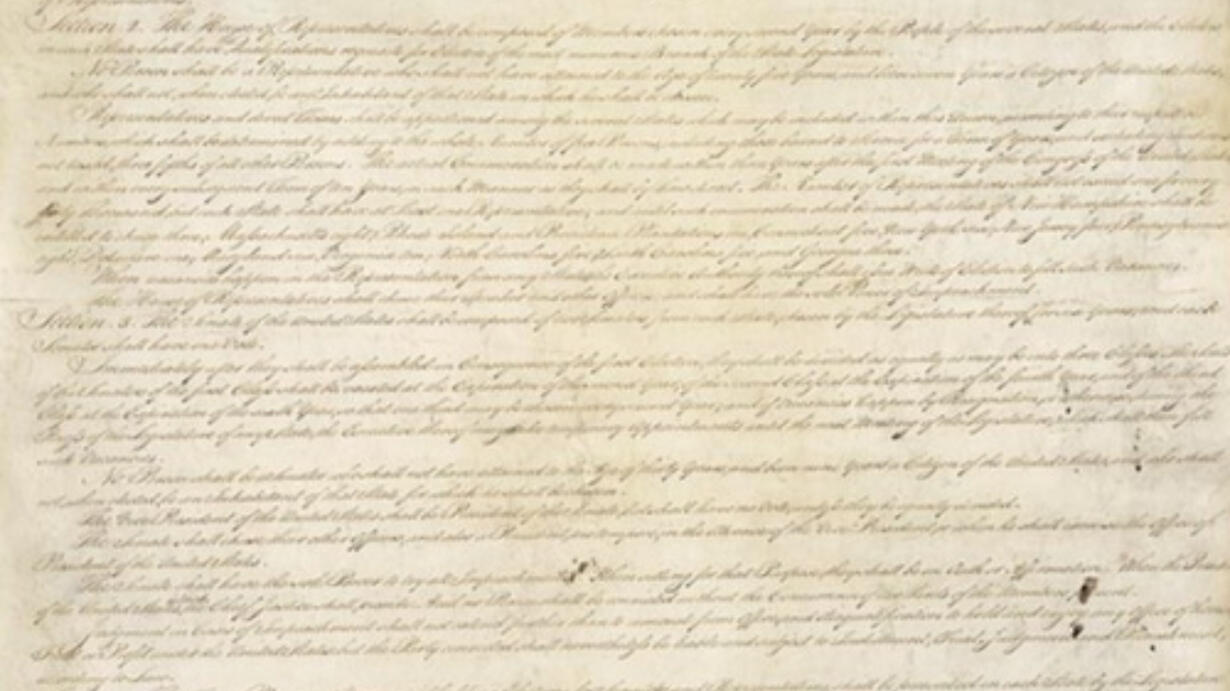 Section. 2. The House of Representatives shall be composed of Members chosen every second Year by the People of the several States, and the Electors
in each State shall have Qualifications requisite for Electors of the most numerous Branch of the State Legislature.
No Person shall be a Representative who shall not have attained to the Age of twenty five Years, and been seven Years a Citizen of the United States,
and who shall not, when elected, be an Inhabitant of that State in which he shall be chosen.
Representatives and direct Taxes shall be apportioned among the several States which may be included within this Union, according to their respective
Numbers, which shall be determined by adding to the whole Number of free Persons, including those bound to Service for a Term of Years, and excluding Indians
not taxed, three fifths of all other Persons. The actual Enumeration shall be made within three Years after the first Meeting of the Congress of the United States,
and within every subsequent Term of ten Years, in such Manner as they shall by Law direct. The Number of Representatives shall not exceed one for every
thirty Thousand, but each State shall have at Least one Representative; and until such enumeration shall be made, the State of New Hampshire shall be
entitled to chuse three, Massachusetts eight, Rhode Island and Providence Plantations one, Connecticut five, New York six, New Jersey four, Pennsylvania
eight, Delaware one, Maryland six, Virginia ten, North Carolina five, South Carolina five, and Georgia three.
When vacancies happen in the Representation from any State, the Executive Authority thereof shall issue Writs of Election to fill such Vacancies.
The House of Representatives shall chuse their Speaker and other Officers; and shall have the sole Power of Impeachment.
Section. 3. The Senate of the United States shall be composed of two Senators from each State, chosen by the Legislature thereof, for six Years; and each
Senator shall have one Vote.
Immediately after they shall be assembled in Consequence of the first Election, they shall be divided as equally as may be into three Classes. The Seats
of the Senators of the first Class shall be vacated at the Expiration of the second Year, of the second Class at the Expiration of the fourth Year, and of the third
Class at the Expiration of the sixth Year, so that one third may be chosen every second Year; and if Vacancies happen by Resignation, or otherwise, during the
Recess of the Legislature of any State, the Executive thereof may make temporary Appointments until the next Meeting of the Legislature, which shall then fill
such Vacancies.
No Person shall be a Senator who shall not have attained to the Age of thirty Years, and been nine Years a Citizen of the United States, and who shall
not, when elected, be an Inhabitant of that State for which he shall be chosen.
The Vice President of the United States shall be President of the Senate, but shall have no Vote, unless they be equally divided.
The Senate shall chuse their other Officers, and also a President pro tempore, in the Absence of the Vice President, or when he shall exercise the Office of
President of the United States.
The Senate shall have the sole Power to try all Impeachments. When sitting for that Purpose, they shall be on Oath or Affirmation. When the President
of the United States is tried, the Chief Justice shall preside: And no Person shall be convicted without the Concurrence of two thirds of the Members present.
Judgment in Cases of Impeachment shall not extend further than to removal from Office, and disqualification to hold and enjoy any Office of honor,
Trust or Profit under the United States: but the Party convicted shall nevertheless be liable and subject to Indictment, Trial, Judgment and Punishment,
according to Law.